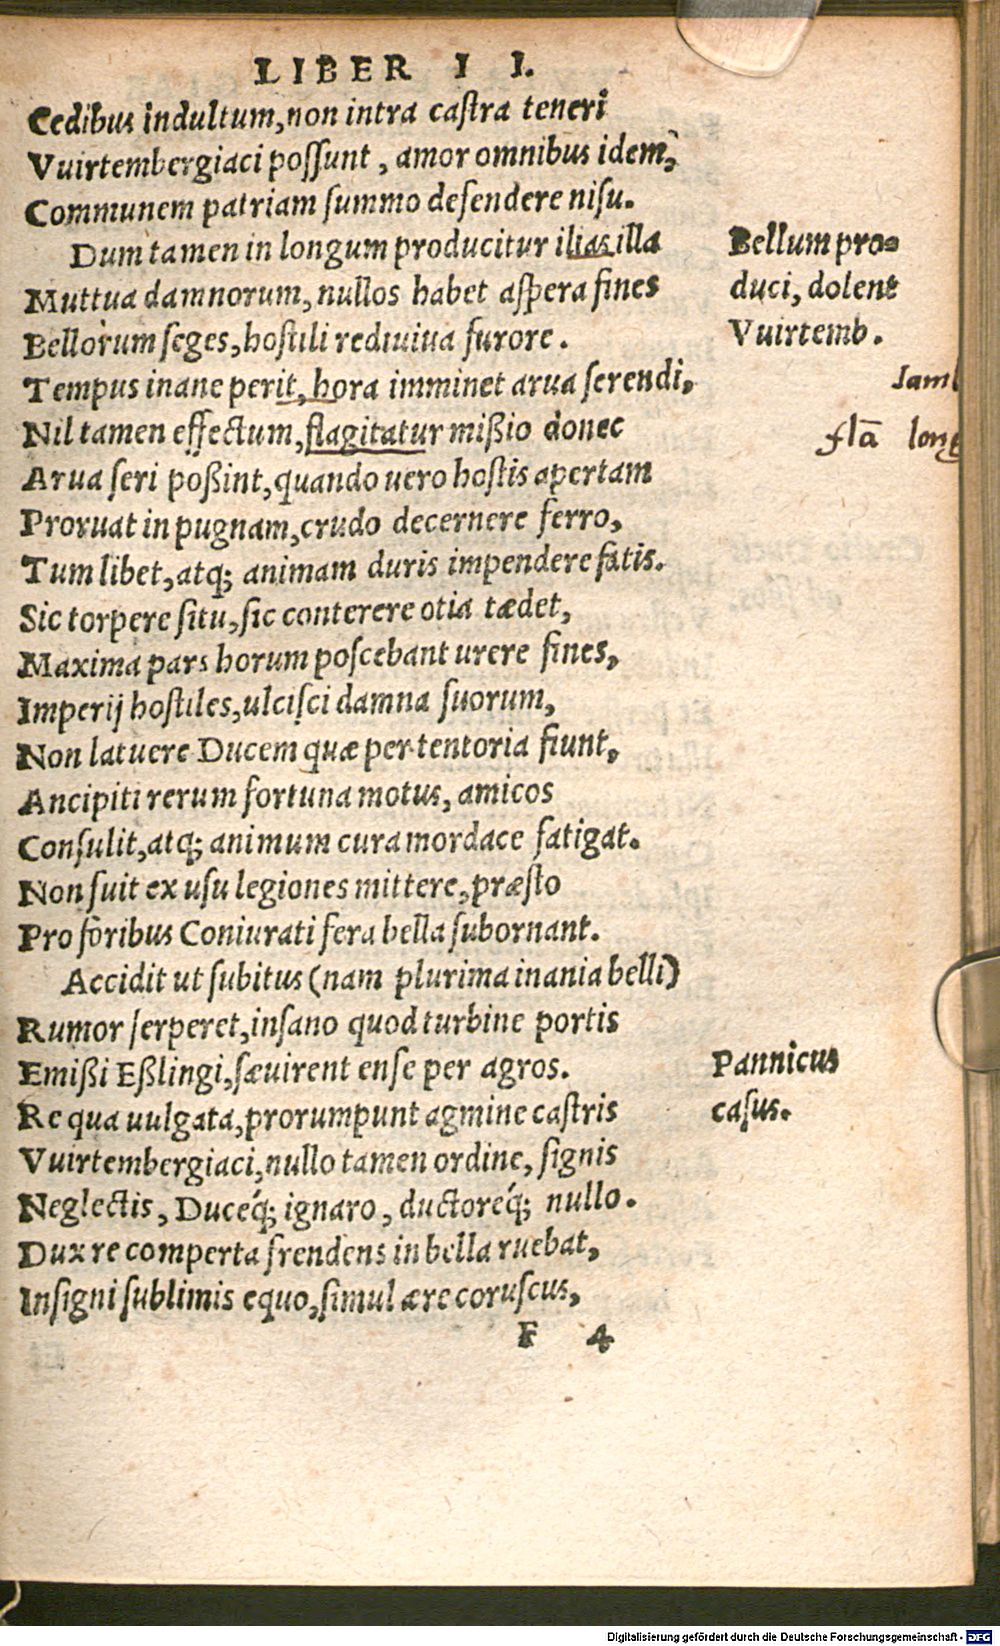 LIBER II.
Cedibus indultum, non intra castra teneri
Vuirtembergiaci possunt, amor omnibus idem,
Communem patriam summo defendere nisu.
Dum tamen in longum producitur ilias illa
Bellum pro=
Muttua damnorum, nullos habet aspera fines
duci, dolent
Bellorum seges, hostili rediuiua furore.
Vuirtemb.
Tempus inane perit, hora imminet arua serendi,
Jam
Nil tamen effectum, flagitatur mißio donec
flā long
Arua seri poßint, quando uero hostis apertam
Proruat in pugnam, crudo decernere ferro,
Tum libet, atq; animam duris impendere fatis.
Sic torpere situ, sic conterere otia tædet,
Maxima pars horum poscebant urere fines,
Imperij hostiles, ulcisci damna suorum,
Non latuere Ducem quæ per tentoria fiunt,
Ancipiti rerum fortuna motus, amicos
Consulit, atq; animum cura mordace fatigat.
Non fuit ex usu legiones mittere, præsto
Pro foribus Coniurati fera bella subornant.
Accidit ut subitus (nam plurima inania belli)
Rumor serperet, insano quod turbine portis
Emißi Eßlingi, sæuirent ense per agros.
Pannicus
Re qua uulgata, prorumpunt agmine castris
casus.
Vuirtembergiaci, nullo tamen ordine, signis
Neglectis, Duceq́; ignaro, ductoreq́; nullo.
Dux re comperta frendens in bella ruebat,
Insigni sublimis equo, simul ære coruscus,
F 4
Digitalisierung gefördert durch die Deutsche Forschungsgemeinschaft - DFG